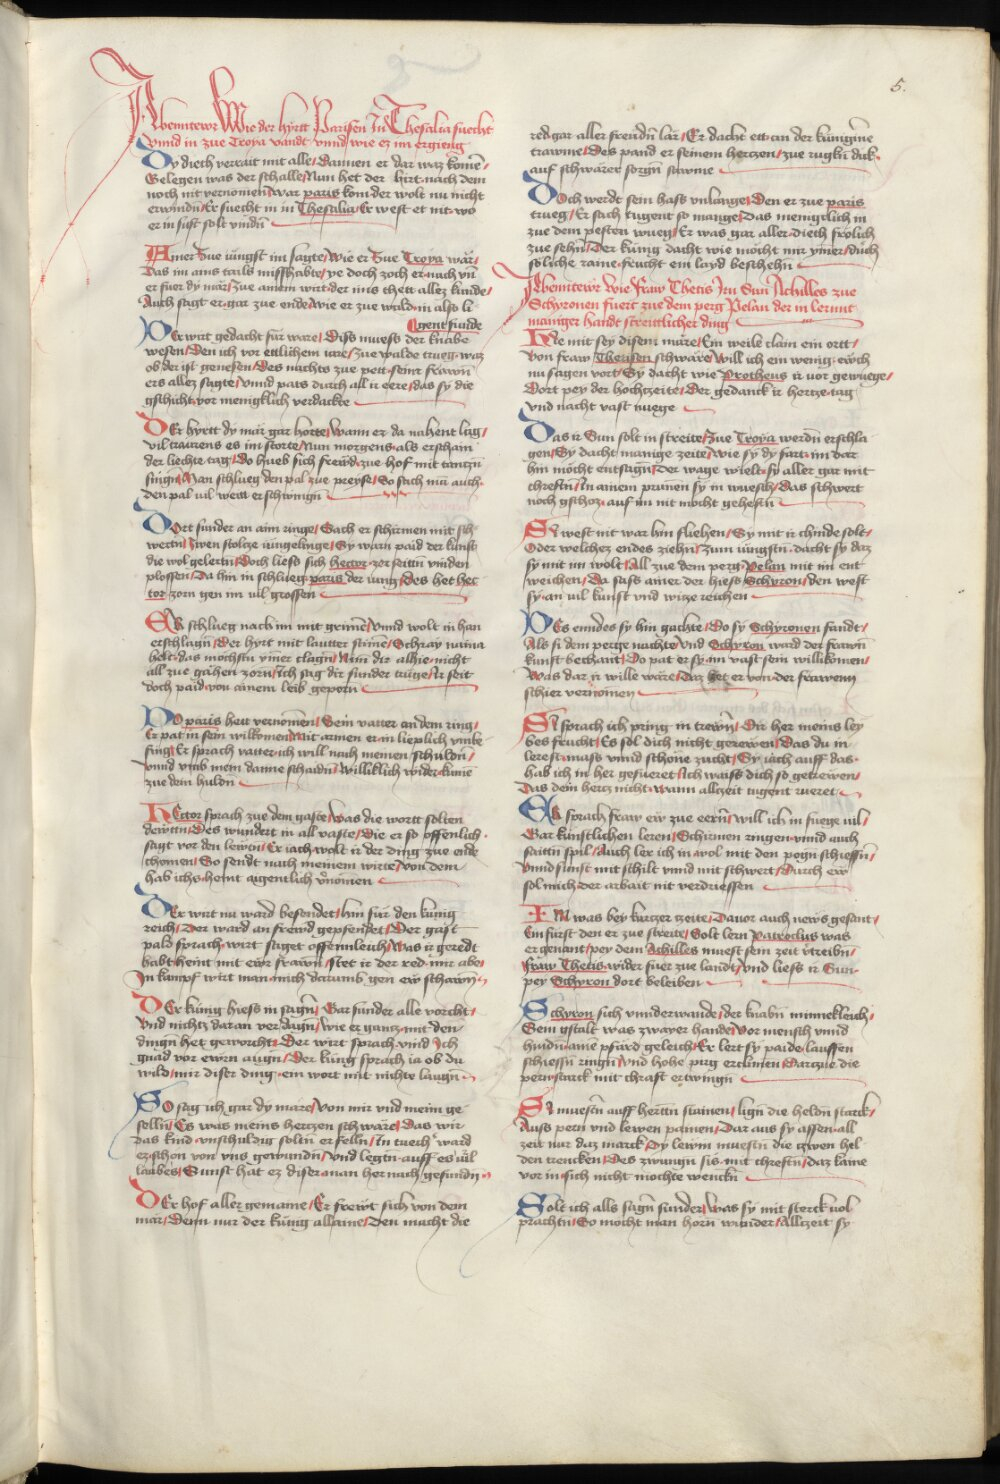 5.
Abenntewr Wie der hyrtt Parisen In Thesalia suecht
Vnnd in zue Troya vandt vnnd wie ez im ergieng
Dy diech verrait mit alle / Dannen er dar waz komen /
Gelegen was der schalle / Nun het der hirt nach dem
noch nit vernomen / war paris kom der wolt nu nicht
erwindn / Er suecht in in Thesalia / Er west et nit wo
er in sust solt vindn
Ainer Zue iüngst im sagte / Wie er Zue Troya wär /
Das im ains tails misshabte / ye doch zoch er nach vn
er fuer dy mär / Zue ainem wirt der ims thett allez kunde /
Auch sagt er gar zue ende / wie er zue wald in also li
gent funde
Der wirt gedacht für ware / Diss muess der knabe
wesen / Den ich vor ettlichem iare / Zue walde trueg waz
ob der ist genesen / Des nachts zue pett seinr frawn
ers allez sagte / Vnnd pats durch all ir eere / das sy die
gschicht vor menigklich verdackte
Der hyrtt dy mär gar horte / Wann er da nahent lag /
vil traurens es im storte / Nun morgens als erschain
der liechte tag / Do hueb sich frewd zue hof mit tantzn
singn / Man schlueg den pal zue preyse / So sach man auch
den pal vil weitt er schwingn
Dort sunder an aim ringe / Sach er schirmen mit sch
wertn / Zwen stoltze iüngelinge / Sy warn paid der kunst
die wol gelertn / Doch liess sich hector zer seittn vinden
plossen / Da hin in schlueg paris der iung / Des het hec
tor zorn gen im vil grossen
Er schlueg nach im mit grimen / Vnnd wolt in han
erschlagn / Der hyrt mit lautter stimen / Schray naina
helt das mochstu ymer clagn / Nim dir alhie nicht
all zue gahen zorn / Ich sag dir sunder trüge / Ir seit
doch paid von ainem leib geporn
Do paris hett vernomen / Sein vatter an dem ring /
Er pat in sein wilkomen / Mit armen er in lieplich vmbe
fing / Er sprach vatter ich will nach meinen schuldn /
vnnd vmb mein danne schaidn / Williklich wider kume
zue dein huldn
Hector sprach zue dem gaste / Was die wortt solten
dewttn / Des wundert in all vaste / Die er so offenlich
sagt vor den lewtn / Er iach wolt ir der ding zue ende
chomen / So sendt nach meinem wirte / Von dem
hab ichs heint aigentlich vernomen
Der wirt nu ward besendet / hin für den künig
reich / Der ward an frewd gepfendet / Der gast
pald sprach wirt saget offennleich / Was ir geredt
habt heint mit ewr frawn / Stet ir der red mir abe /
In kampf wirt man mich darumb gen ew schawn
Der künig hiess in sagn / Gar sunder alle vorcht /
Vnd nichtz daran verdagn / Wie er ganz mit den
dingn het geworcht / Der wirt sprach vnnd Ich
gnad vor ewrn augn / Der küng sprach ia ob du
wild / mir diser ding ein wort mit nichte laugn
So sag ich gar dy märe / Von mir vnd meim ge
selln / Es was meins hertzen schwäre / Das wir
das kind vnschuldig soltn er felln / In tuech ward
ez schon von vns gewundn / Vnd legtn auff es vil
laubes / Sunst hat ez diser man hernach gefundn
Der hof aller gemaine / Er frewt sich von dem
mär / Denn nur der künig allaine / Den macht die
red gar aller freudn lär / Er dacht ett an der künigine
trawme / Des pand er seinem hertzen / zue rugkn dick
auf schwärer sorgn sawme
Doch werdt sein hass vnlange / Den er zue paris
trueg / Er sach tugent so mange / Das menigclich in
zue dem pesten wueg / Er was gar aller diech frölich
zue sehn / Der küng dacht wie möcht mir ymer / durch
soliche raine frucht ein layd beschehn
Abenntewr wie fraw Thetis Irn Sun Achilles zue
Schyronen fuert zue dem perg Pelan der in lernnt
maniger handt streittlicher ding
Hie mit sey disem märe / Ein weile clain ein ortt /
Von fraw Thetisen schwäre / Will ich ein wenig ewch
nu sagen vort / Sy dacht wie Protheus ir vor gewuege /
Dort pey der hochzeite / Der gedanck ir hertze tag
vnd nacht vast nuege
Das ir Sun solt in streite / Zue Troya werdn erschla
gen / Sy dacht manige zeite / Wie sy dy fart im dar
hin möcht entsagn / Der wage wielt sy aller gar mit
chrefftn / In ainem prunen sy in wuesch / Das schwert
noch gschoz auf im nit mocht gehefftn
Sy west nit war hin fliehen / Sy mit ir chinde solt /
Oder welchez endes ziehn / Zum iüngstn dacht sy daz
sy mit im wolt / All zue dem perg Pelan mit im ent
weichen / Da sass ainer der hiess Schyron / den west
sy an vil kunst vnd witze reichen
Des enndes sy hin gachte / Do sy Schyronen fandt /
Als si dem perge nachte / Vnd Schyron ward der frawn
kunft bechant / Do pat er sy im vast sein willikomen /
Was dar ir wille wäre / Daz het er von der frawenn
schier vernomen
Sy sprach ich pring in trewn / Dir her meins ley
bes frucht / Es sol dich nicht gerewen / Das du in
lerest mass vnnd schone zucht / Sy iach auff das
hab ich in her gefueret / Ich waiss dich so getrewen /
Das dein hertz nicht wann allzeit tugent rueret
Er sprach fraw ew zue eern / will ich in fuege vil /
Gar künstlichen leren / Schirmen ringen vnnd auch
saittn spil / Auch ler ich in wol mit den pogn schiessn /
Vnnd sunst mit schilt vnnd mit schwert / Durch ew
sol mich der arbait nit verdriessen
Nu was bey kurtzer zeite / Dauor auch news gesant /
Ein fürst den er zue streite / Solt lern Patroclus was
er genant / pey dem Achilles muest sein zeit vtreibn /
fraw Thetis wider fuer zue landt / Vnd liess ir Sun
pey Schyron dort beleiben
Schyron sich vnnderwande / der knabn minneklich /
Sein gstalt was zwayer hande / Vor mensch vnnd
hindn aine pfärd geleich / Er lert sy paide lauffen
schiessn ringn / Vnd hohe pirg erclimen / Darzue die
pern starck mit chrafft ertwingn
Sy muestn auff herttn stainen / lign die heldn starck /
Auss pern vnd lewen painen / Dar aus sy assen all
zeit nur daz marck / Dy lewin muestn die tzwen hel
den trencken / Des zwungn sis mit chrefftn / daz kaine
vor in sich nicht mochte wenckn
Solt ich alls sagn sunder / Was sy mit sterck vol
prachtn / So möcht man horn wunder / Allzeit sy